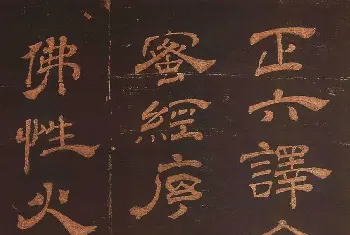 正六譯
蜜經序
佛性火